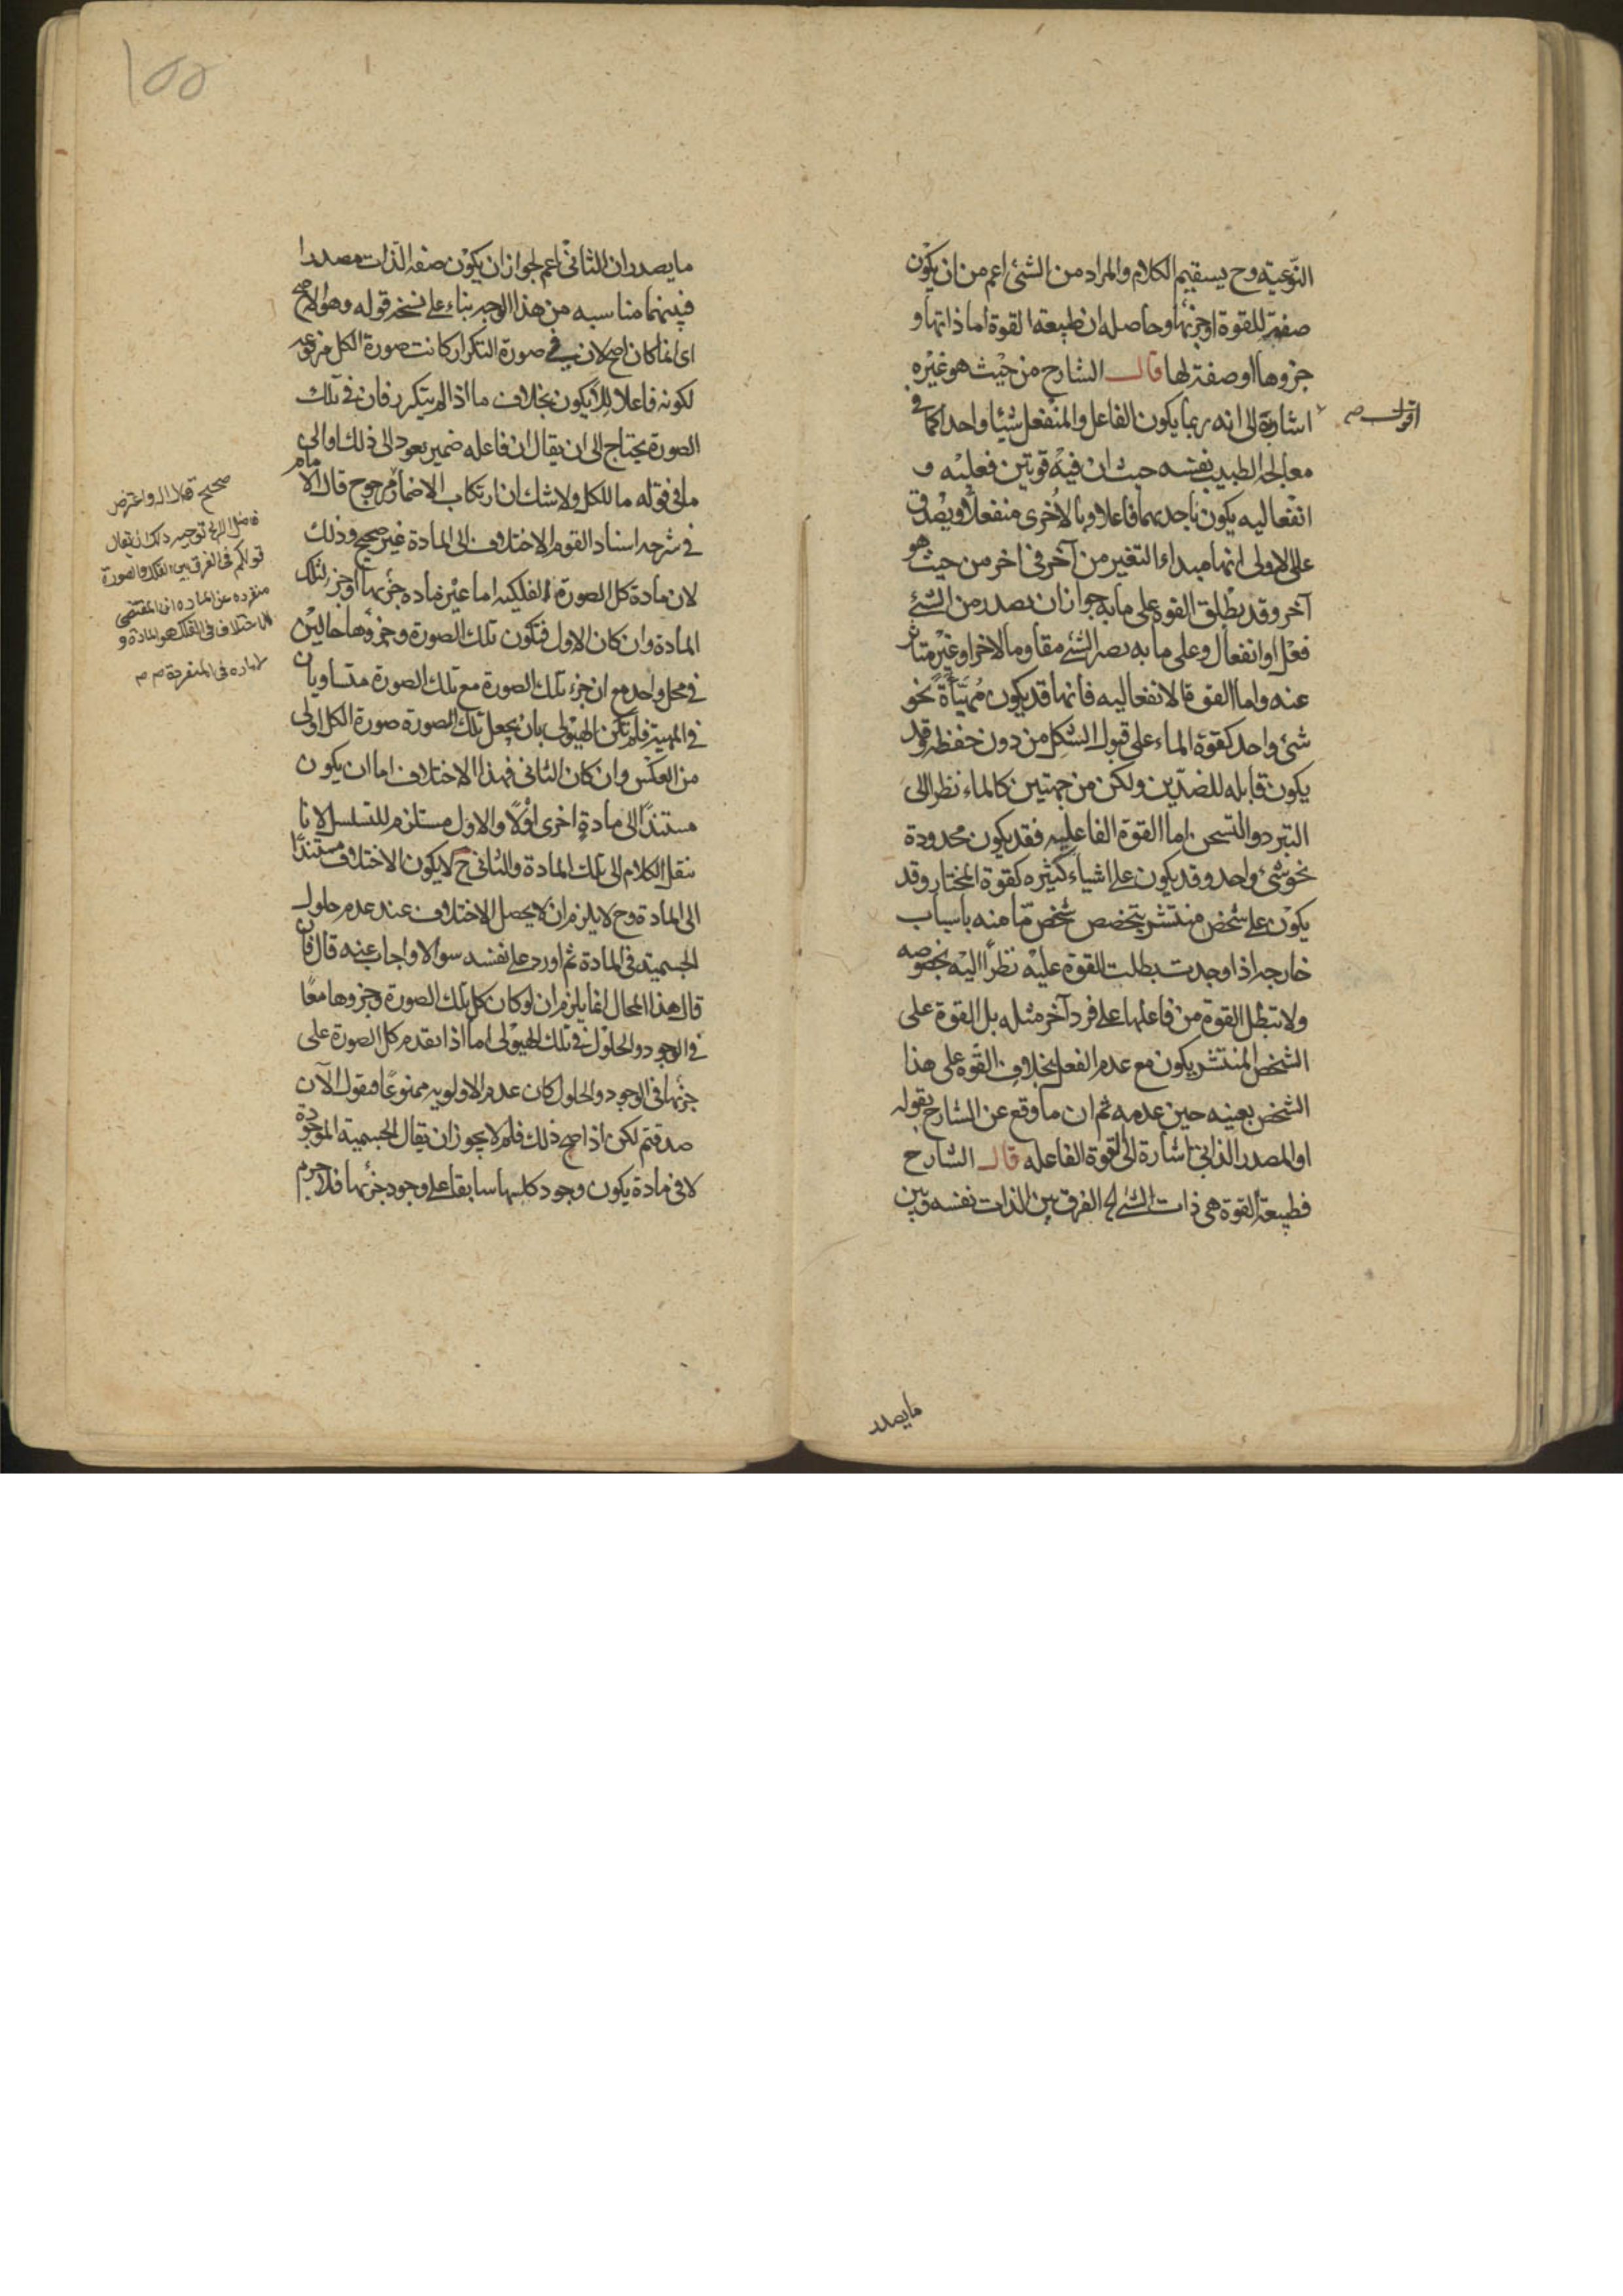 النوعية وح يستقيم الكلام والمراد من الشئ اعم من ان يكون
صفة للقوة او جزئها وحاصله ان طبيعة القوة اما ذاتها و
جزوها او صفة لها قال الشارح من حيث هو غيره
اقول صح
اشارة الى انه ربما يكون الفاعل والمنفعل شيئا واحدا كما في
معالجة الطبيب نفسه حيث ان فيه قوتين فعلية و
انفعالية يكون باحديهما فاعلا وبالاخرى منفعلا ويصدق
على الاولى انها مبداء التغير من آخر في اخر من حيث هو
آخر وقد يطلق القوة على ما به جواز ان يصدر من الشئ
فعل او انفعال وعلى ما به يصير الشئ مقاوما لاخر او غير متاثر
عنه واما القوة الانفعالية فانها قد يكون مهيّأة نحو
شئ واحد كقوة الماء على قبول الشكل من دون حفظه وقد
يكون قابلة للضدّين ولكن من جهتين كالماء نظرا الى
التبرد والتسخن اما القوة الفاعلية فقد يكون محدودة
نحو شئ واحد وقد يكون على اشياء كثيرة كقوة المختار وقد
يكون على شخص منتشر يتخصص شخص مّا منه باسباب
خارجة اذا وجدت بطلت القوة عليه نظرًا اليه بخصوصه
ولا تبطل القوة من فاعلها على فرد آخر مثله بل القوة على
الشخص المنتشر يكون مع عدم الفعل بخلاف القوة على هذا
الشخص بعينه حين عدمه ثم ان ما وقع عن الشارح بقوله
او المصدر الذاتي اشارة الى القوة الفاعله قال الشارح
فطبيعة القوة هى ذات الشئ الخ الفرق بين الذات نفسه وبين
ما يصدر
١٥٥
ما يصدر ان الثانى اعم لجواز ان يكون صفة الذات مصدرا
فبينهما مناسبه من هذا الوجه بناء على نسخة قوله وهو الاصح
اى انما كان اصح لان في صورة التكرار كانت صورة الكل مرفوعة
لكونه فاعلا للايكون بخلاف ما اذا لم يتكرر فان في تلك
الصورة يحتاج الى ان يقال ان فاعله ضمير يعود الى ذلك او الى
ما في قوله ما للكل ولا شك ان ارتكاب الاضمار مرجوح قال الامام
في شرحه اسناد القوم الاختلاف الى المادة غير صحيح وذلك
لان مادة كل الصورة الفلكية اما عين مادة جزئها او جزء لتلك
المادة وان كان الاول فتكون تلك الصورة وجزوها حالين
في محل واحد مع ان جزء تلك الصورة مع تلك الصورة متساويان
في المهية فلم تكن الهيولى بان يجعل تلك الصورة صورة الكل اولى
من العكس وان كان الثانى فهذا الاختلاف اما ان يكون
مستندًا الى مادةٍ اخرى او لا والاول مستلزم للتسلسل لانا
ننقل الكلام الى تلك المادة والثانى ح لا يكون الاختلاف مستندًا
الى المادة وح لا يلزم ان لا يحصل الاختلاف عند عدم حلول
الجسمية في المادة ثم اورد على نفسه سوالا واجاب عنه قال فان
قال هذا المحال انما يلزم ان لو كان كل تلك الصورة وجزوها معًا
في الوجود والحلول في تلك الهيولى اما اذا تقدم كل الصورة على
جزئها في الوجود والحلول كان عدم الاولوية ممنوعًا فنقول الآن
صدقتم لكن اذا صح ذلك فلم لا يجوز ان يقال الجسمية الموجودة
لا في مادة يكون وجود كلها سابقا على وجود جزئها فلا جرم
صحيح
واعترض
توجيه ذلك ان يقال
قولكم في الفرق بين الفلك والصورة
منفرده عن الماده ان المقتضى
للاختلاف في الفلك هو المادة و
لا ماده في المنفردة صح